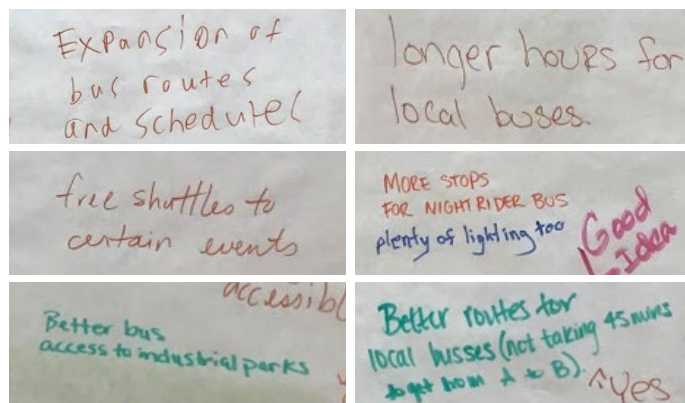 Expansion of
bus routes
and schedules
longer hours for
local buses.
free shuttles to
certain events
MORE STOPS
FOR NIGHT RIDER BUS
plenty of lighting too
Good
Idea
accessibl
Better bus
access to industrial parks
Better routes for
local busses (not taking 45 mins
to get from A to B).
↑Yes